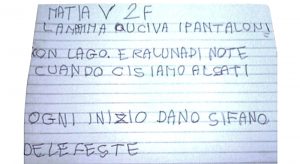 MATIA V 2F
LA MAMMA QUCIVA I PANTALONI
CON LAGO. ERA LUNA DI NOTE
CUANDO CISIAMO ALSATI
OGNI INIZIO DANO SIFANO
DELEFESTE